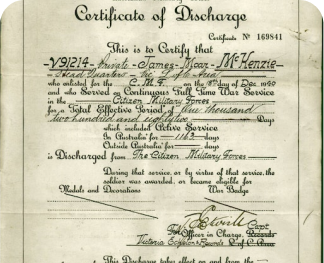 Certificate of Discharge
Certificate No 169841
This is to Certify that
V91214 Private James Moar McKenzie
Head Quarters Vic L of C Area
who enlisted for the C.M.F. on the 8th day of Dec 1940
and who Served on Continuous Full Time War Service
in the Citizen Military Forces
for a Total Effective Period of One thousand
two hundred and eightytwo Days
which included Active Service
In Australia for 1163 days
Outside Australia for days
is Discharged from The Citizen Military Forces
During that service, or by virtue of that service, the
soldier was awarded, or became eligible for
Medals and Decorations War Badge
Capt
Officer in Charge, Records
Victoria Echelon & Records L of C Area
This Discharge takes effect on and from the